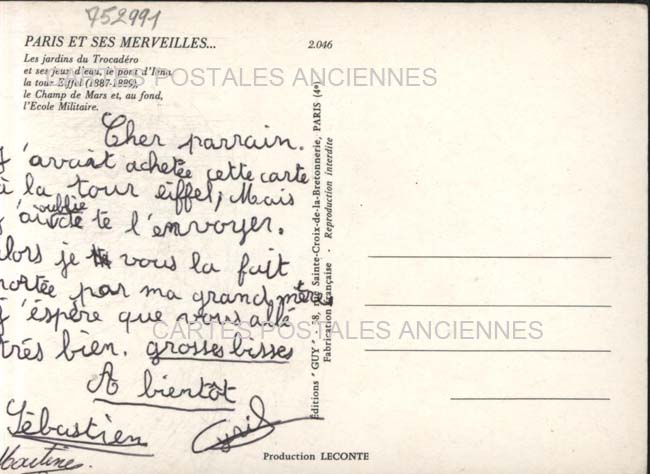 752991
PARIS ET SES MERVEILLES...
2.046
Les jardins du Trocadéro
et ses jeux d'eau, le pont d'Iéna,
la tour Eiffel (1887-1889),
le Champ de Mars et, au fond,
l'Ecole Militaire.
CARTES POSTALES ANCIENNES
Cher parrain.
J'avait achetée cette carte
à la tour eiffel, Mais
oublie
te l'envoyer.
alors je vous la fait
portée par ma grand mère,
J'éspère que vous allé
trés bien. grosses bisses
A bientôt
Sébastien Cyril
Martine.
CARTES POSTALES ANCIENNES
Editions "GUY" - 8, rue Sainte-Croix-de-la-Bretonnerie, PARIS (4e)
Fabrication Française - Reproduction interdite
Production LECONTE